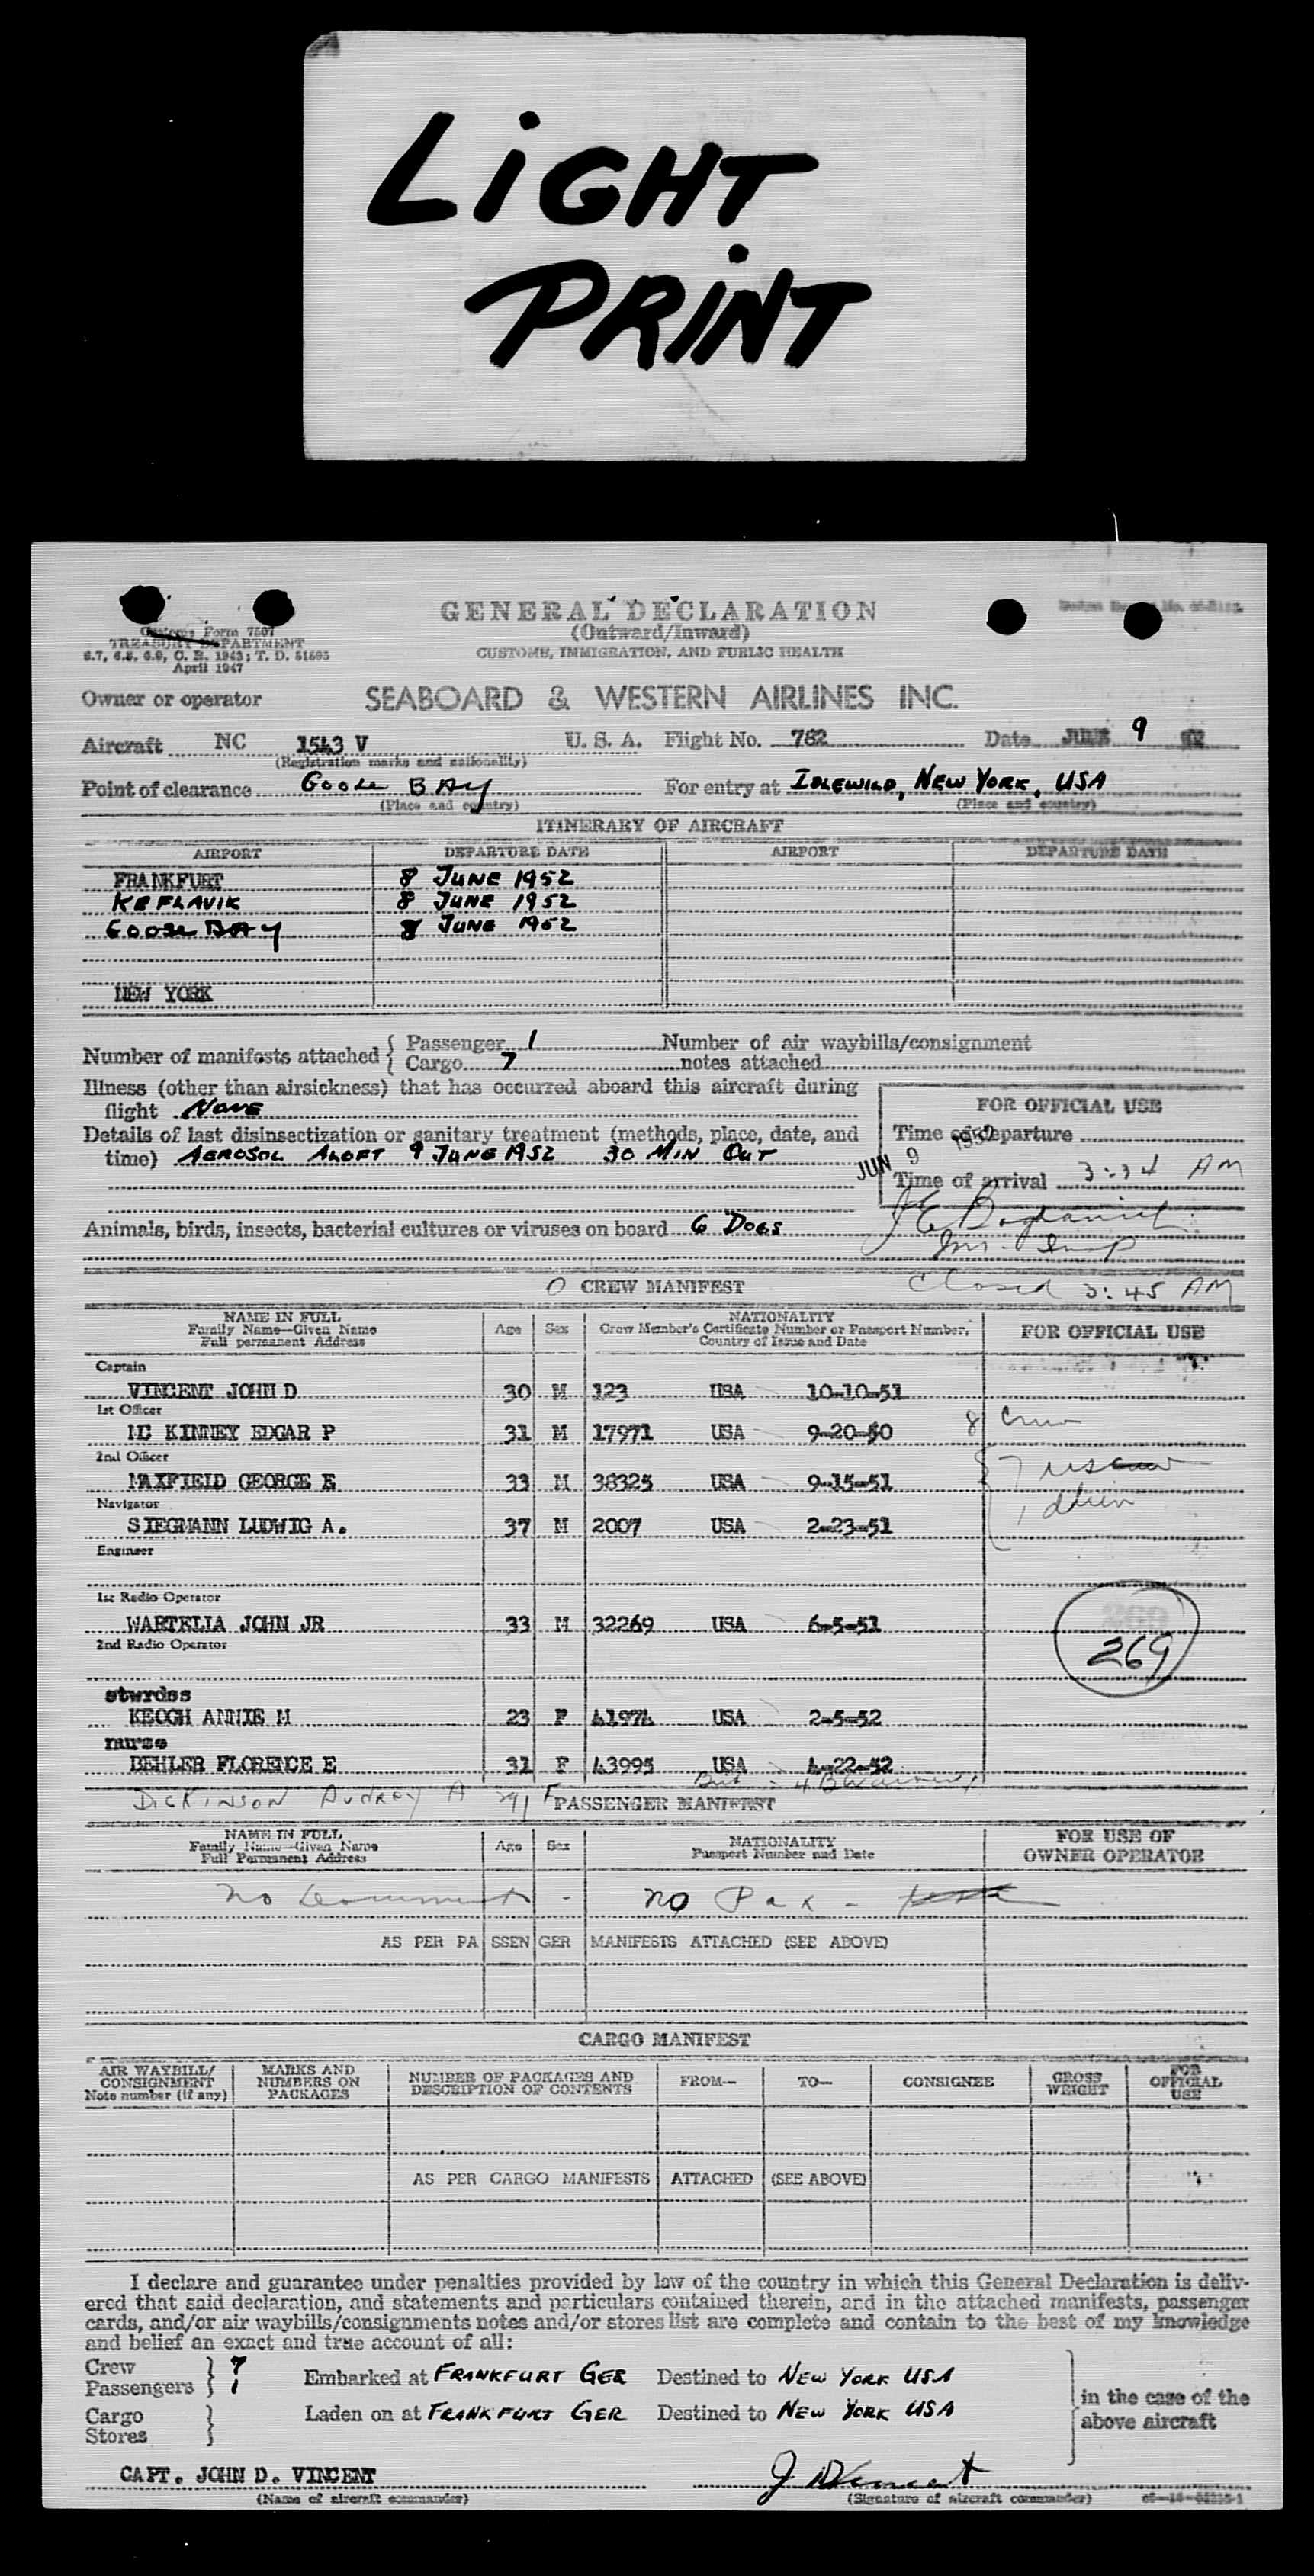 LIGHT
PRINT
GENERAL DECLARATION
(Outward/Inward)
CUSTOMS, IMMIGRATION, AND PUBLIC HEALTH
Customs Form 7507
TREASURY DEPARTMENT
6.7, 6.8, 6.9, C. R. 1943; T. D. 51595
April 1947
Owner or operator SEABOARD & WESTERN AIRLINES INC.
Aircraft NC 1543 V U. S. A. Flight No. 782 Date JUNE 9
(Registration marks and nationality)
Point of clearance Goose BAy For entry at IDLEWILD, NEW YORK, USA
(Place and country) (Place and country)
ITINERARY OF AIRCRAFT
AIRPORT DEPARTURE DATE AIRPORT DEPARTURE DATE
FRANKFURT 8 JUNE 1952
KEFLAVIK 8 JUNE 1952
GOOSE BAY 8 JUNE 1952
NEW YORK
Number of manifests attached { Passenger 1 Number of air waybills/consignment
Cargo 7 notes attached
Illness (other than airsickness) that has occurred aboard this aircraft during
flight NONE
FOR OFFICIAL USE
Details of last disinsectization or sanitary treatment (methods, place, date, and
time) AEROSOL ALOFT 9 JUNE 1952 30 MIN OUT
Time of departure
JUN 9 1952
Time of arrival 3:34 AM
Animals, birds, insects, bacterial cultures or viruses on board 6 DOGS
Closed 3:45 AM
0 CREW MANIFEST
NAME IN FULL
Family Name—Given Name
Full permanent Address
Age Sex
NATIONALITY
Crew Member's Certificate Number or Passport Number,
Country of Issue and Date
FOR OFFICIAL USE
Captain
VINCENT JOHN D 30 M 123 USA 10-10-51
1st Officer
MC KINNEY EDGAR P 31 M 17971 USA 9-20-50
8 Crew
2nd Officer
MAXFIELD GEORGE E 33 M 38325 USA 9-15-51
7
Navigator
SIEGMANN LUDWIG A. 37 M 2007 USA 2-23-51
1
Engineer
1st Radio Operator
WARTELIA JOHN JR 33 M 32269 USA 6-5-51
269
269
2nd Radio Operator
stwrdss
KEOGH ANNIE M 23 F 41974 USA 2-5-52
nurse
BEHLER FLORENCE E 31 F 43995 USA 4-22-52
DICKINSON AUDREY A 29 F
PASSENGER MANIFEST
NAME IN FULL
Family Name—Given Name
Full Permanent Address
Age Sex
NATIONALITY
Passport Number and Date
FOR USE OF
OWNER OPERATOR
no Document - no Pax -
AS PER PASSENGER MANIFESTS ATTACHED (SEE ABOVE)
CARGO MANIFEST
AIR WAYBILL/
CONSIGNMENT
Note number (if any)
MARKS AND
NUMBERS ON
PACKAGES
NUMBER OF PACKAGES AND
DESCRIPTION OF CONTENTS
FROM— TO— CONSIGNEE
GROSS
WEIGHT
FOR
OFFICIAL
USE
AS PER CARGO MANIFESTS ATTACHED (SEE ABOVE)
I declare and guarantee under penalties provided by law of the country in which this General Declaration is deliv-
ered that said declaration, and statements and particulars contained therein, and in the attached manifests, passenger
cards, and/or air waybills/consignments notes and/or stores list are complete and contain to the best of my knowledge
and belief an exact and true account of all:
Crew } 7
Passengers } 1
Embarked at FRANKFURT GER Destined to NEW YORK USA
Cargo }
Stores }
Laden on at FRANKFURT GER Destined to NEW YORK USA
in the case of the
above aircraft
CAPT. JOHN D. VINCENT J D Vincent
(Name of aircraft commander) (Signature of aircraft commander)